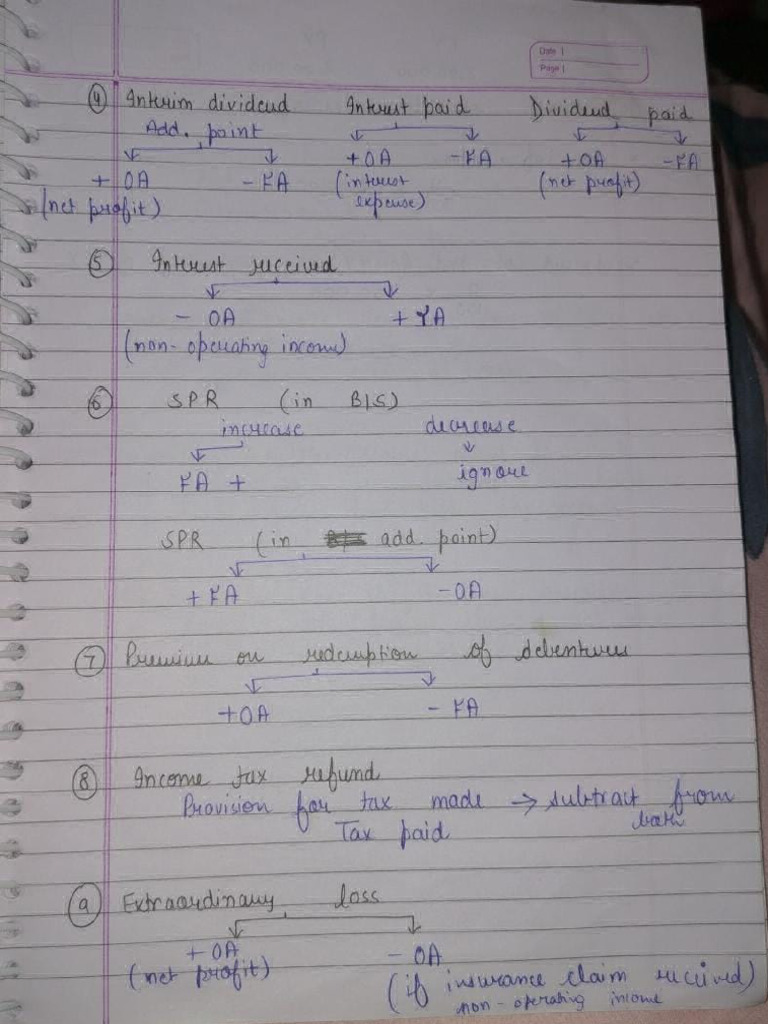 Date |
Page |
④ Interim dividend Interest paid Dividend paid
Add. point
+ OA - FA +OA - FA +OA - FA
(net profit) (interest expense) (net profit)
⑤ Interest received
- OA + FA
(non-operating income)
⑥ SPR (in B/S)
increase decrease
FA + ignore
SPR (in add. point)
+ FA - OA
⑦ Premium on redemption of debentures
+OA - FA
⑧ Income tax refund
Provision for tax made → subtract from
Tax paid both
⑨ Extraordinary loss
+ OA - OA
(net profit) (if insurance claim received)
non-operating income